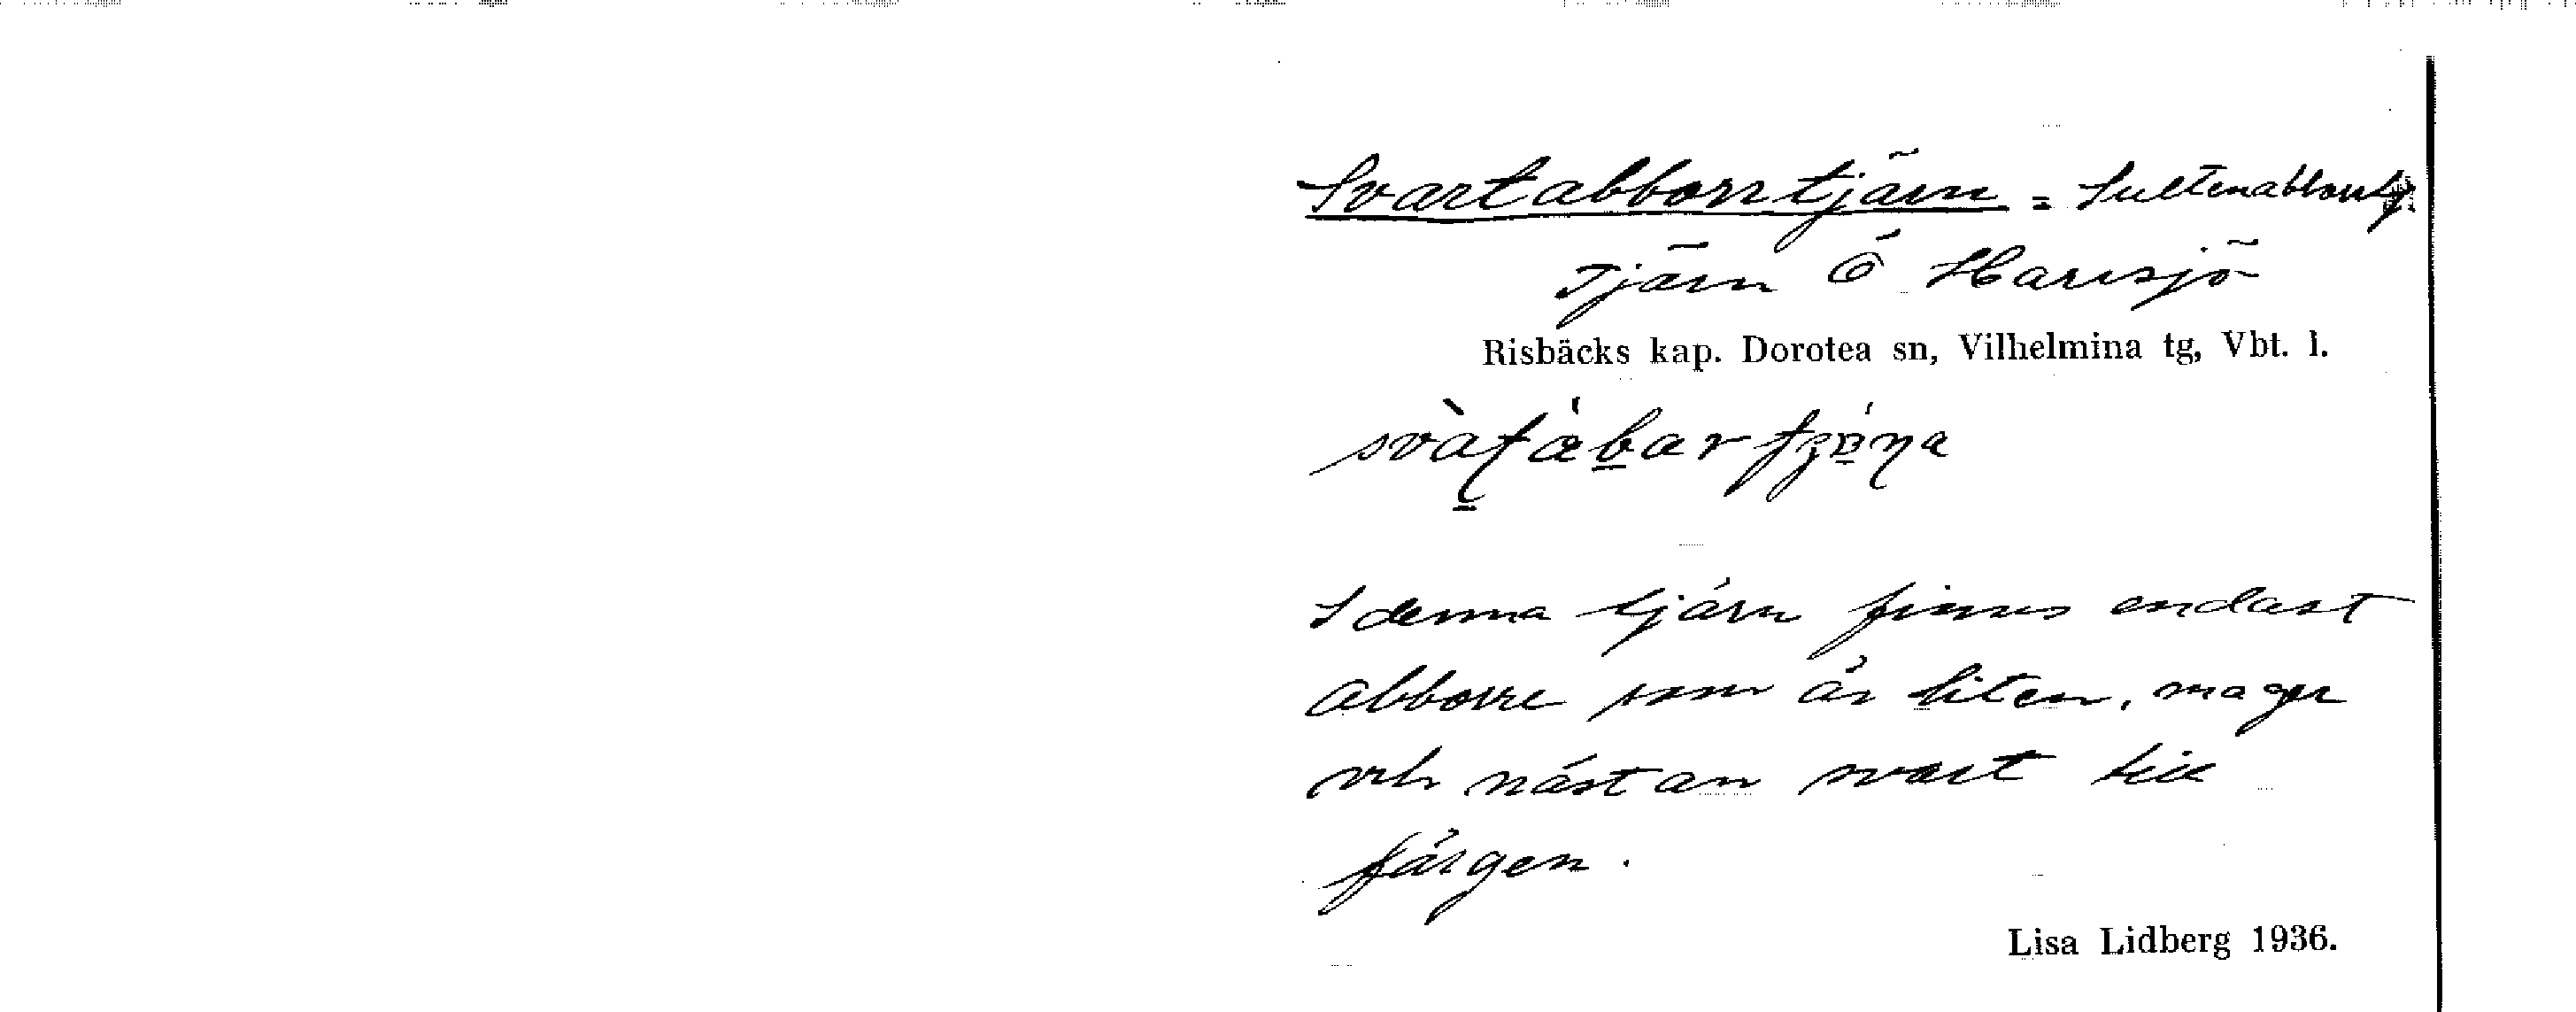 Svartabborrtjärn = Sultenabborrtj.
Tjärn Ö Harrsjö
Risbäcks kap. Dorotea sn, Vilhelmina tg, Vbt. l.
I denna tjärn finnes endast
abborre som är liten, mager
och nästan svart till
färgen.
Lisa Lidberg 1936.